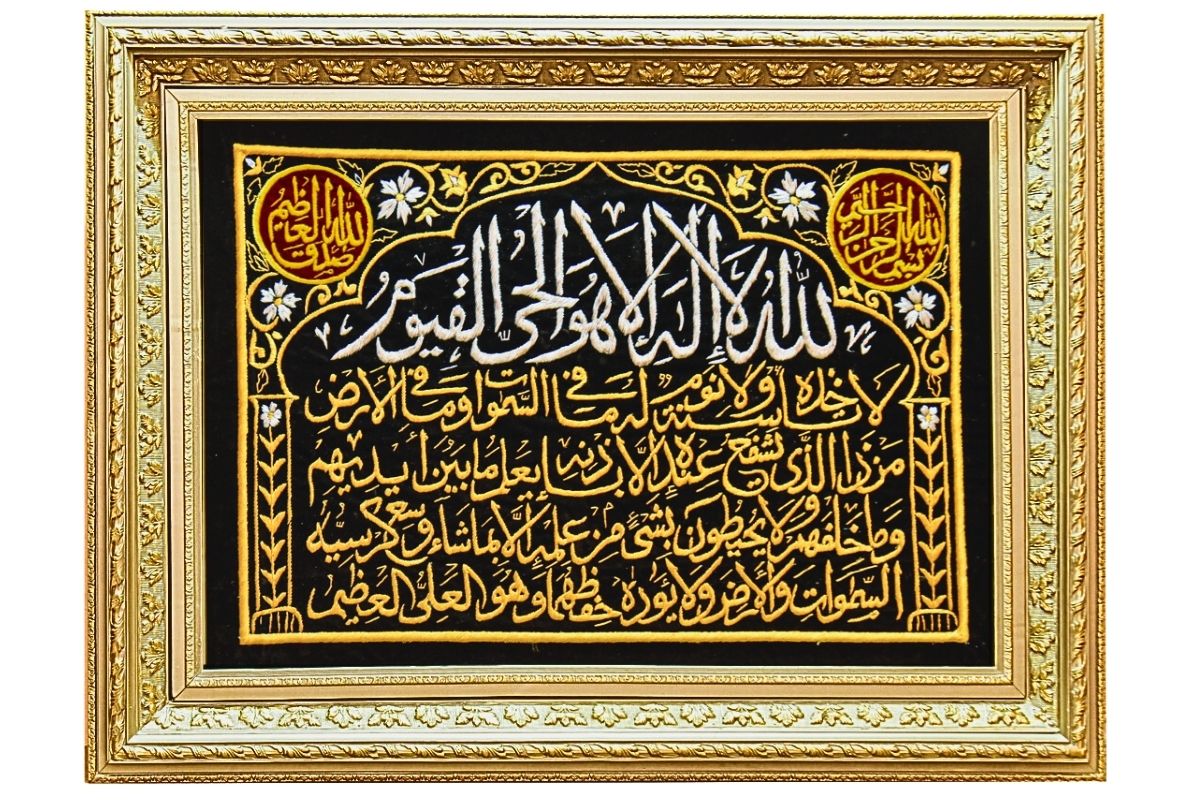 بسم الله الرحمن الرحيم
صدق الله العظيم
الله لا إله إلا هو الحي القيوم
لا تأخذه سنة ولا نوم له ما في السموات وما في الأرض
من ذا الذي يشفع عنده إلا بإذنه يعلم ما بين أيديهم
وما خلفهم ولا يحيطون بشيء من علمه إلا بما شاء وسع كرسيه
السموات والأرض ولا يئوده حفظهما وهو العلي العظيم